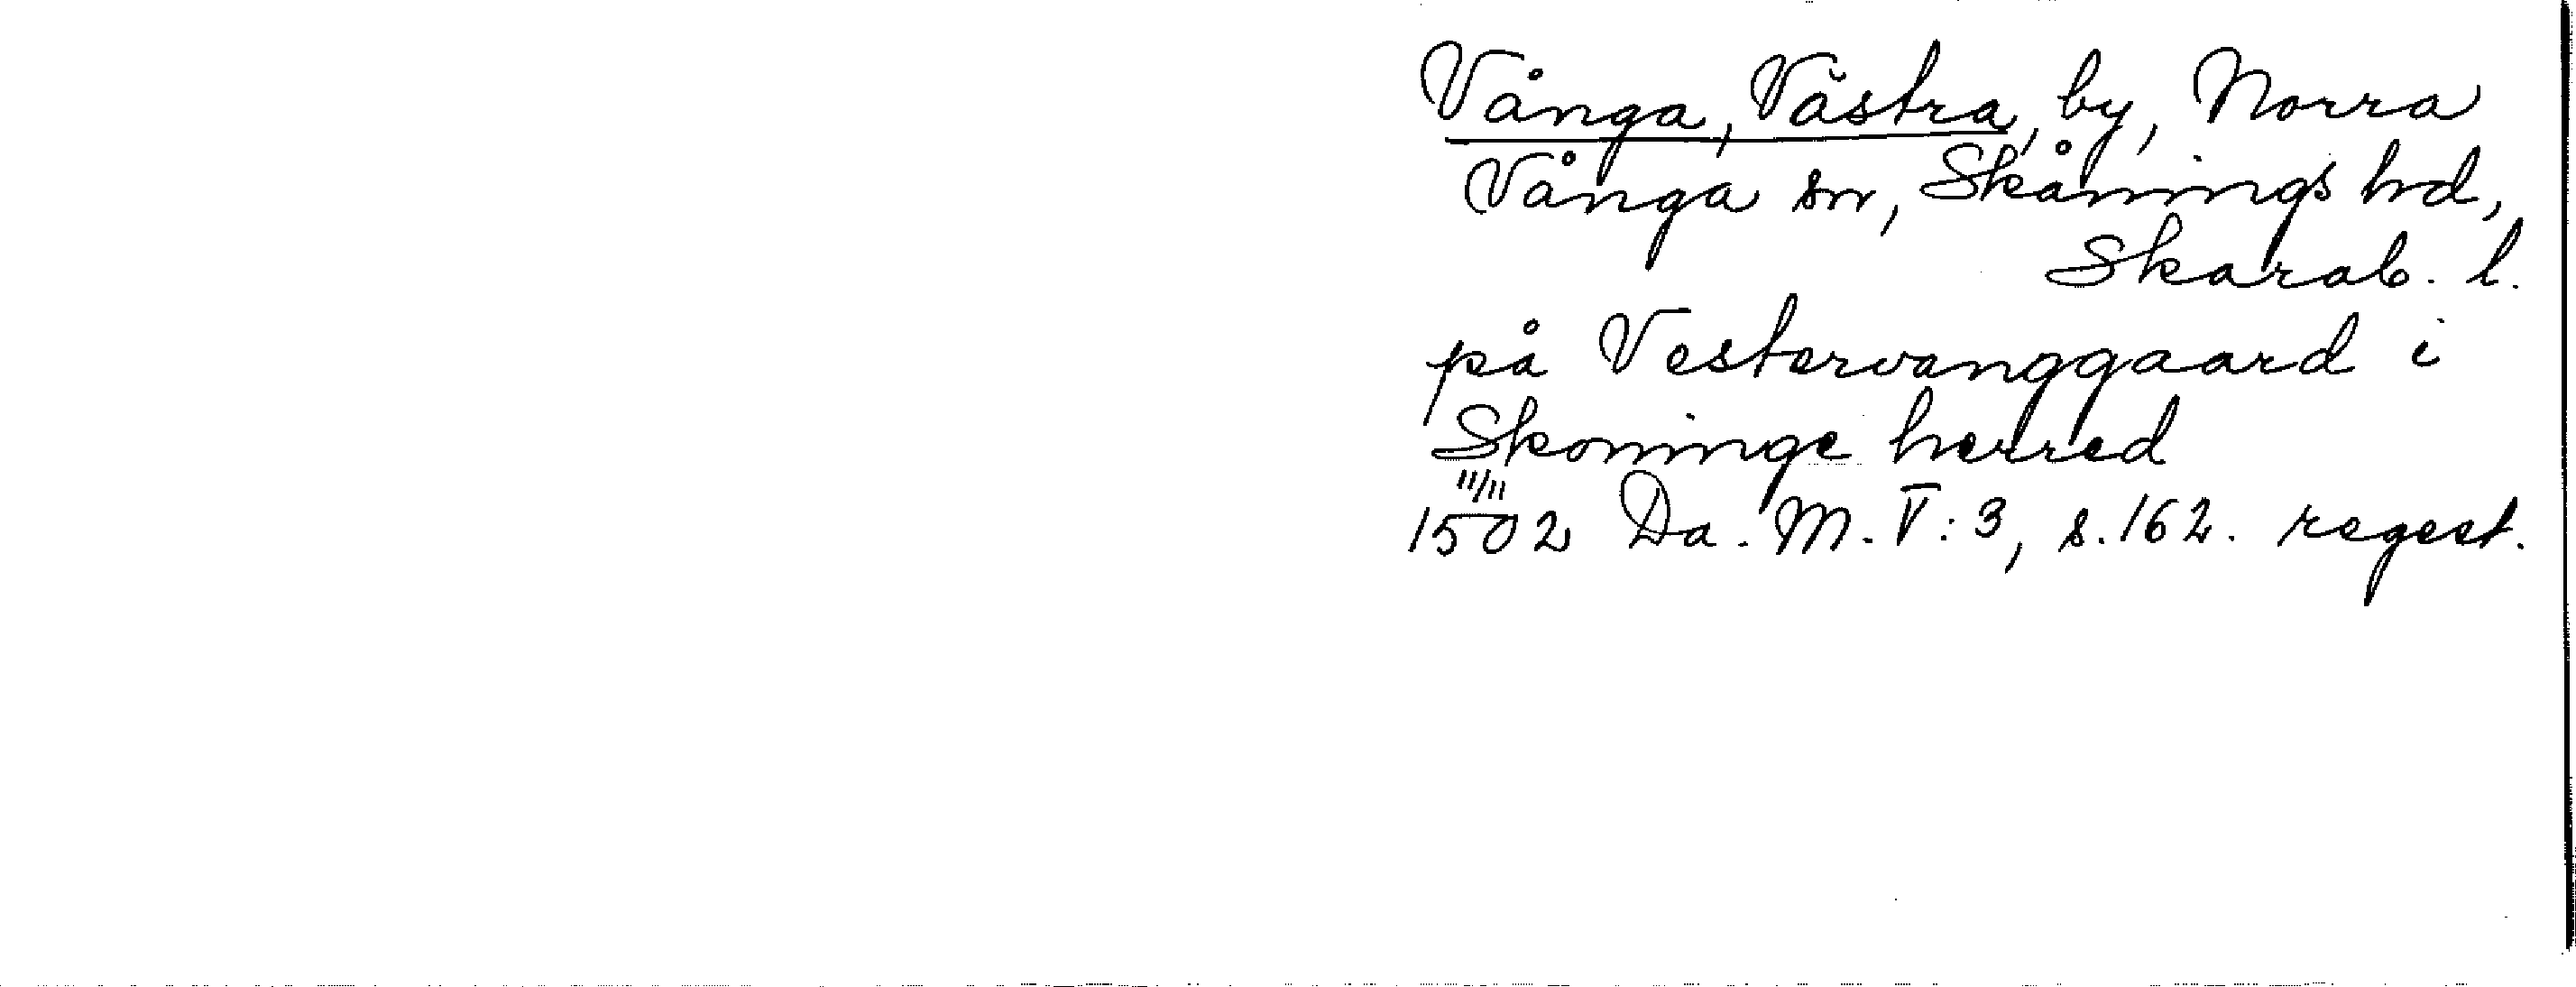 Vånga, Västra, by, Norra
Vånga sn, Skånings hd,
Skarab. l.
på Vestervanggaard i
Skoninge herred
11/11
1502 Da. M. V: 3, s. 162. regest.